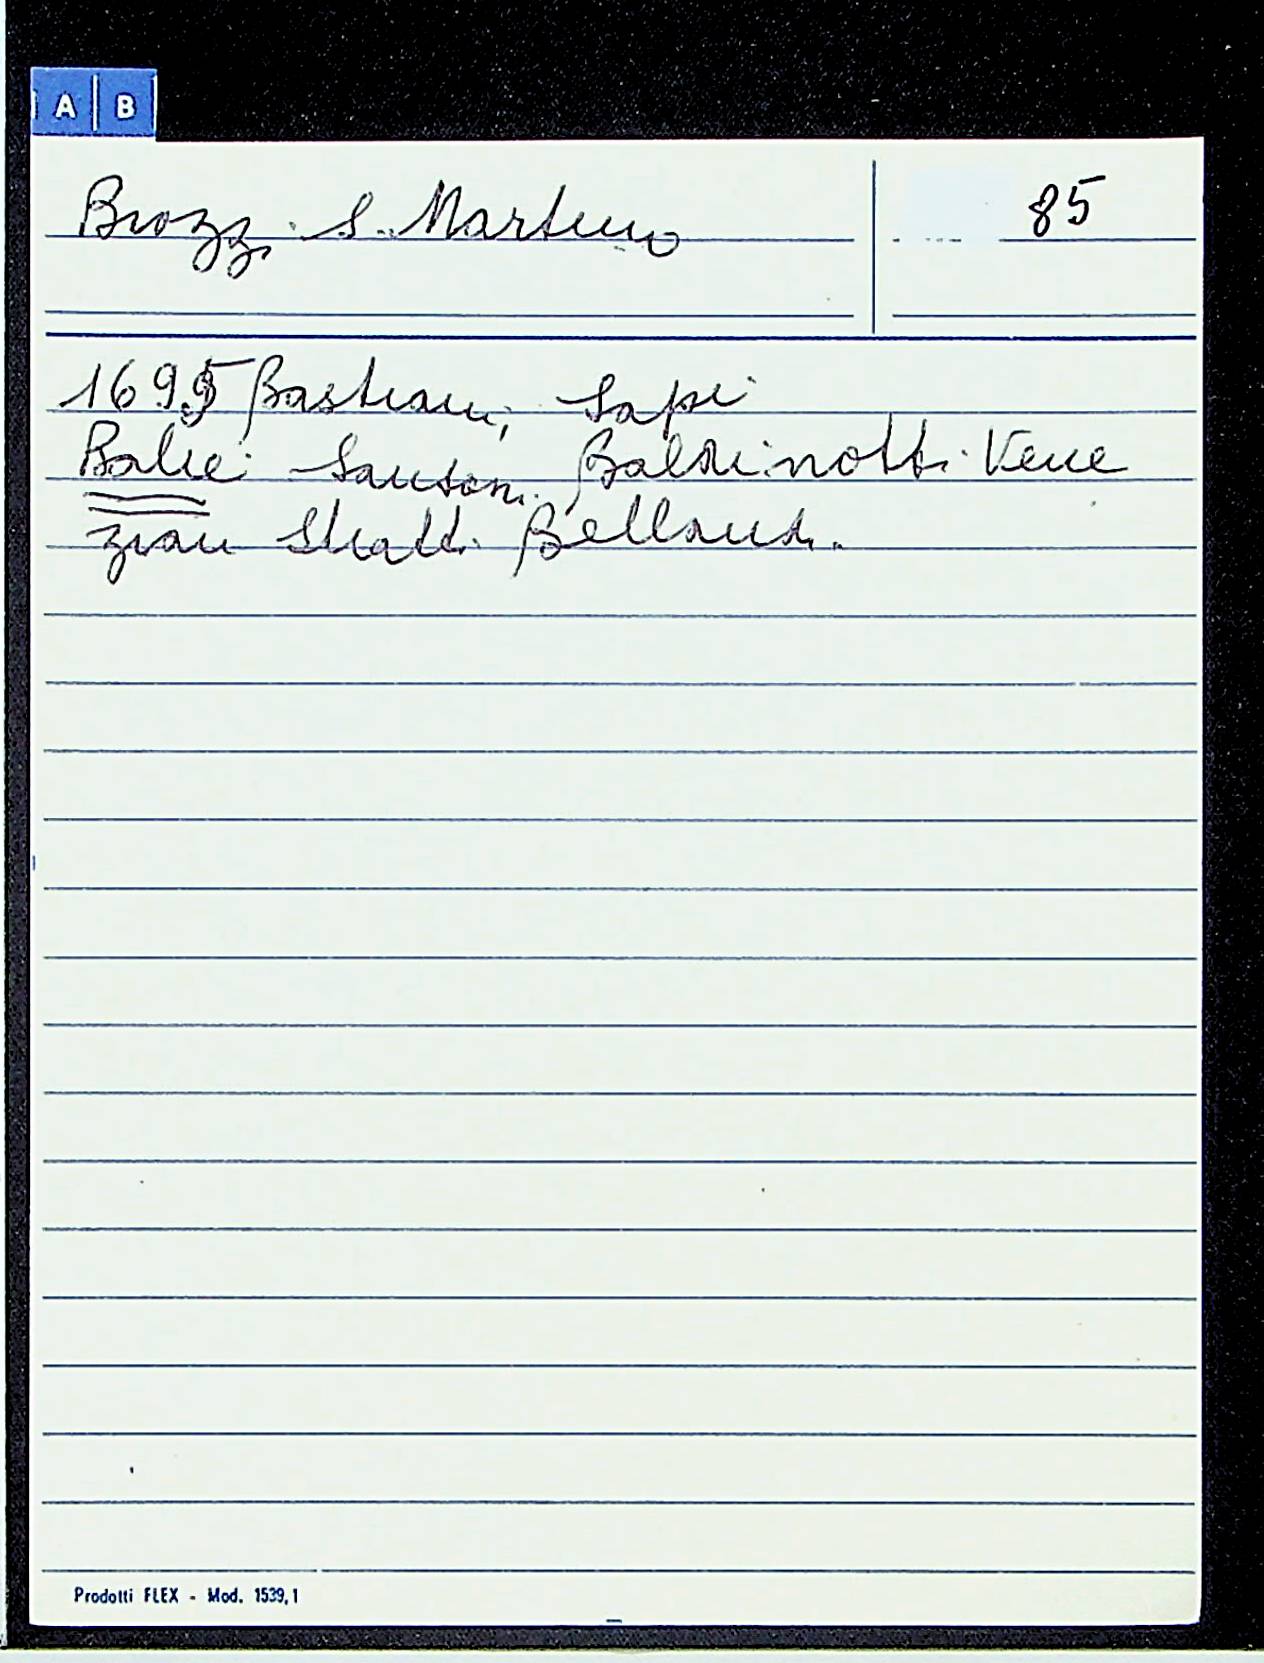 A B
Brozzi S. Martino
85
1695 Bastiani, Lapi
Balie Sansoni Baldinotti Vene
ziani Stratti
Prodotti FLEX - Mod. 1539,1